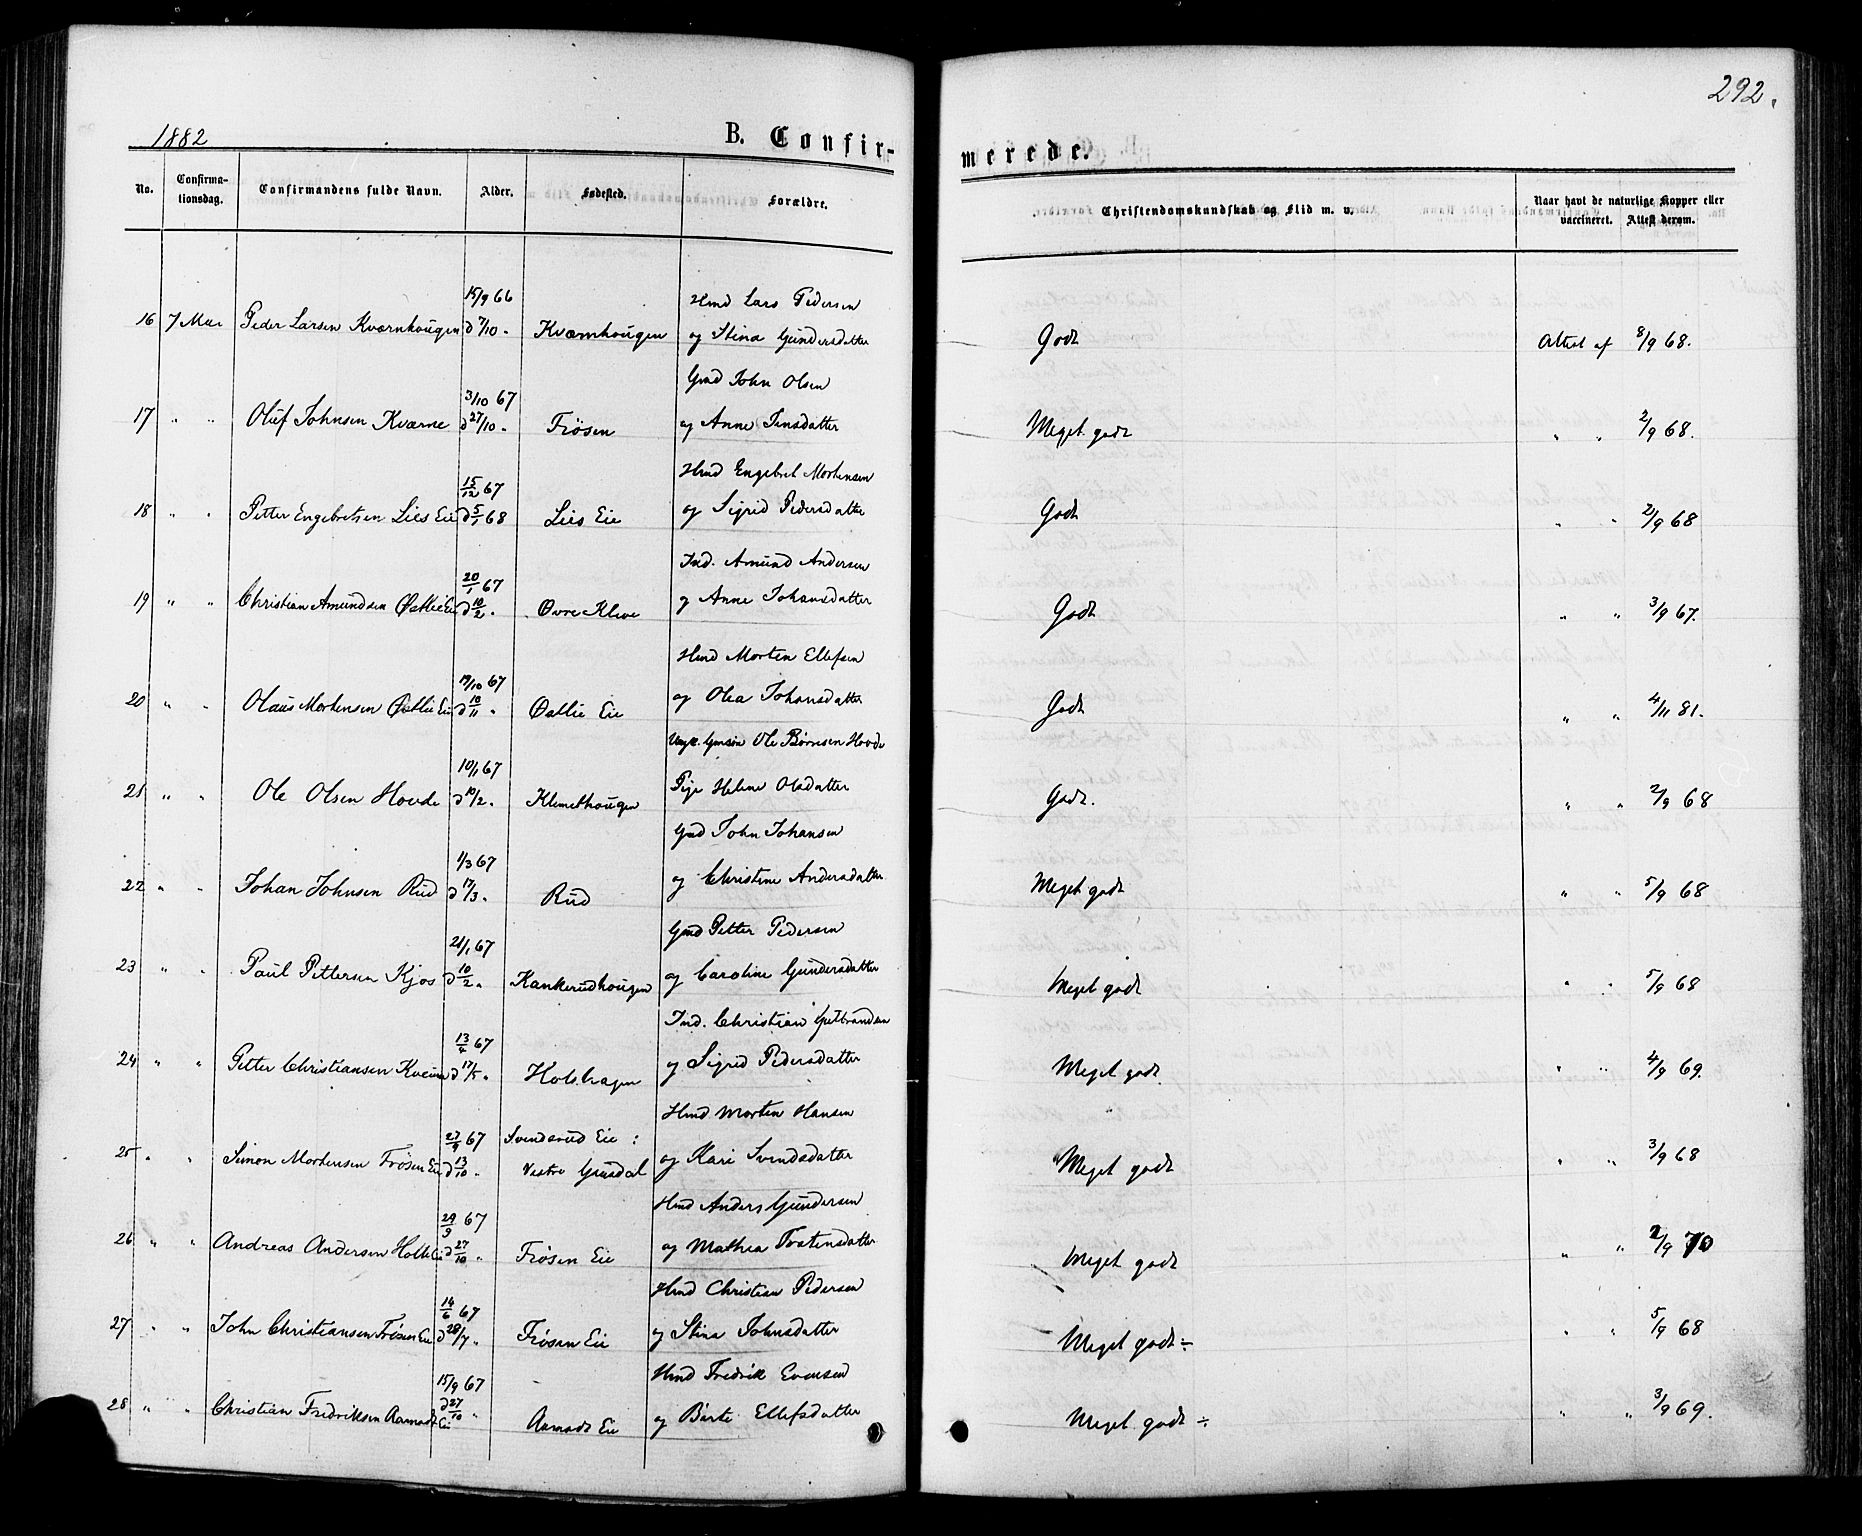 292.
1882
B. Confir-
merede.
No. Confirma-tionsdag. Confirmandens fulde Navn. Alder. Fødested. Forældre. Christendomskundskab og Flid m. v. Naar havt de naturlige Kopper eller vaccineret. Attest derom.
15/9 66 Hmd Lars Pedersen
16 7 Mai Peder Larsen Kværnhougen d 7/10 " Kværnhougen og Stina Gundersdatter Godt Attest af 8/9 68.
3/10 67 Gmd John Olsen
17 " " Oluf Johnsen Kværne d 27/10 " Frösen og Anne Jensdatter Meget godt " " 2/9 68.
15/12 67 Hmd Engebret Mortensen
18 " " Petter Engebretsen Lies Eie d 5/1 68 Lies Eie og Sigrid Pedersdatter Godt " " 2/9 68
20/1 67 Ind. Amund Andersen
19 " " Christian Amundsen Østlie Eie d 10/2 " Øvre Kleve og Anne Johansdatter Godt " " 3/9 67.
19/10 67 Hmd Morten Ellefsen
20 " " Olaus Mortensen Østlie Eie d 10/11 " Østlie Eie og Olea Johansdatter Godt " " 4/11 81.
10/1 67 Ole Børresen Hovde
21 " " Ole Olsen Hovde d 10/2 " Klemethougen Pige Helene Olsdatter Godt. " " 2/9 68
1/3 67 Gmd John Johansen
22 " " Johan Johnsen Rud d 17/3 " Rud og Christine Andersdatter Meget godt " " 5/9 68
21/1 67 Gmd Petter Pedersen
23 " " Paul Pettersen Kjos d 10/2 " Kankerudhougen og Caroline Gundersdatter Meget godt " " 5/9 68
13/4 67 Ind. Christian Gulbrandsen
24 " " Petter Christiansen d 17/5 " Holshagen og Sigrid Pedersdatter Meget godt " " 4/9 69.
27/9 67 Svenderud Eie : Hmd Morten Hansen
25 " " Simon Mortensen Frösen Eie d 13/10 " Vestre og Kari Svendsdatter Meget godt " " 3/9 68
29/9 67 Hmd Anders Gundersen
26 " " Andreas Andersen d 27/10 " Frösen Eie og Mathea Tostensdatter Meget godt " " 2/9 70
14/6 67 Hmd Christian Pedersen
27 " " John Christiansen Frösen Eie d 28/7 " Frösen Eie og Stina Johnsdatter Meget godt ÷ " " 5/9 68
15/9 67 Hmd Fredrik Evensen
28 " " Christian Fredriksen Aamodt Eie d 27/10 " Aamodt Eie og Berte Ellefsdatter Meget godt ÷ " " 3/9 69.